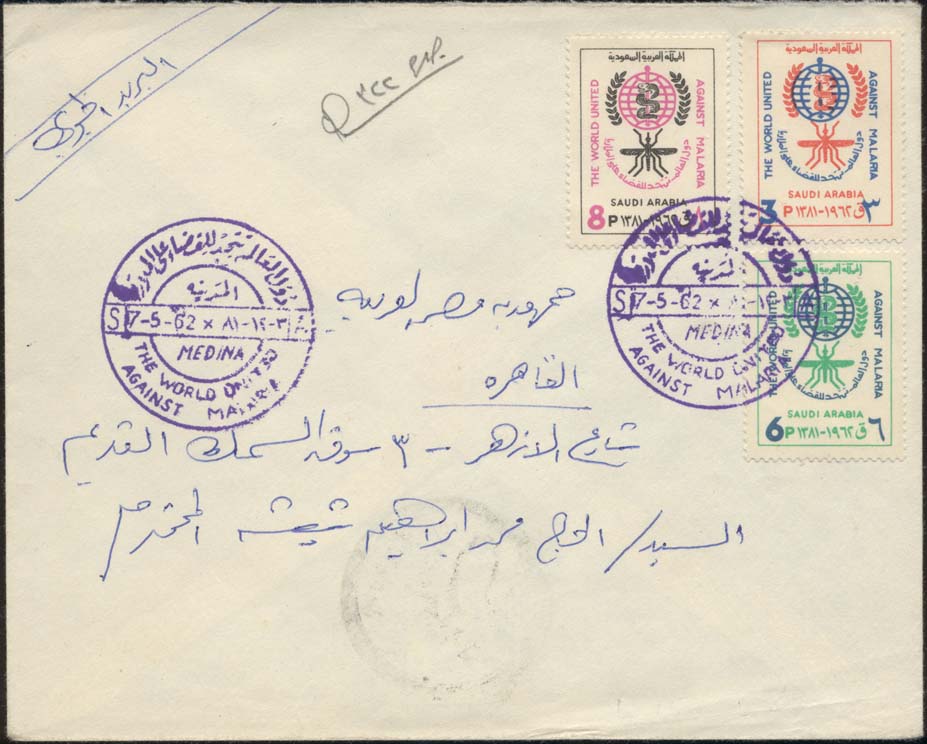 البريد الجوي
المملكة العربية السعودية
THE WORLD UNITED
AGAINST MALARIA
SAUDI ARABIA
8 P ١٣٨١-١٩٦٢ ق
المملكة العربية السعودية
THE WORLD UNITED
AGAINST MALARIA
SAUDI ARABIA
3 P ١٣٨١-١٩٦٢ ق ٣
المملكة العربية السعودية
THE WORLD UNITED
AGAINST MALARIA
SAUDI ARABIA
6 P ١٣٨١-١٩٦٢ ق ٦
دول العالم تتحد للقضاء على الملاريا
المدينة
7-5-62 × ٨١-١٢-٣
MEDINA
THE WORLD UNITED
AGAINST MALARIA
دول العالم تتحد للقضاء على الملاريا
المدينة
7-5-62 × ٨١-١٢-٣
MEDINA
THE WORLD UNITED
AGAINST MALARIA
جمهورية مصر العربية
القاهره
شارع الازهر - ٣ سوق السمك القديم
السيد/ الحاج محمد ابراهيم شيشه المحترم